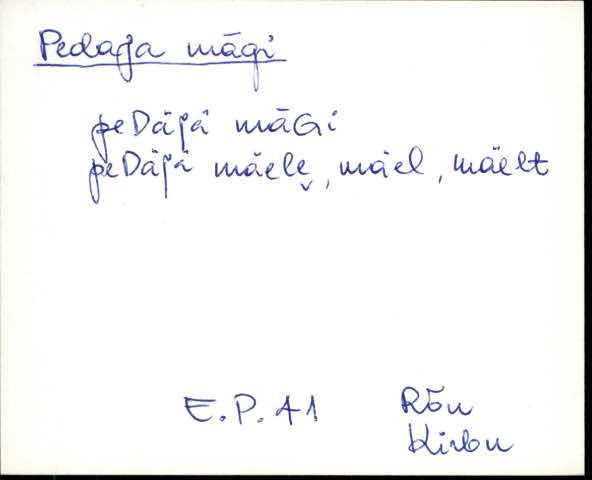 Pedaja mägi
peDäjä mäGi
peDäjä mäele̬, mäel, mäelt
E.P. 41 Rõu
Kirbu